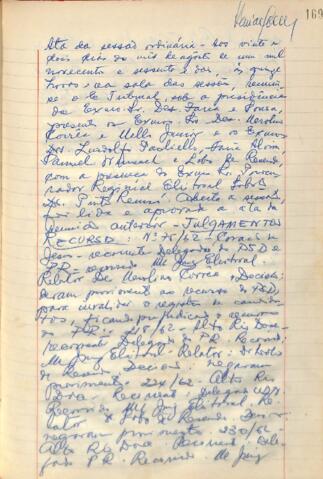 169
Ata da sessão ordinária - Aos vinte e
dois dias do mês de agosto de um mil
novecentos e sessenta e dois, às quinze
horas, na sala das sessões, reuniu-
se o E. Tribunal, sob a presidência
do Exmo. Sr. Des. Faria e Sousa,
presentes os Exmos. Srs. Des. Merolino
Corrêa e Mello Junior e os Exmos.
Drs.
e Lobo de Resende,
com a presença do Exmo. Sr. Procu-
rador Regional Eleitoral
Dr. Aberta a sessão,
foi lida e aprovada a ata da
reunião anterior - JULGAMENTOS
RECURSO: Nº 75/62 - Coração de
Jesus - recorrente Delegados do PSD e
PR - recorrido MM Juiz Eleitoral -
Relator Des. Merolino Corrêa - Decisão:
deram provimento ao recurso do PSD,
para invalidar o registro de candida-
tos, ficando prejudicado o recurso
do PR: 218/62 - Alto Rio Doce -
recorrente Delegado do PR. Recorrido:
MM Juiz Eleitoral - Relator: Dr. Lobo
de Resende. Decisão: negaram
provimento. 224/62 - Alto Rio
Doce. Recorrente: Delegado
Recorrido MM Juiz Eleitoral. Re-
lator Dr. Lobo de Resende. Decisão:
negaram provimento. 230/62 -
Alto Rio Doce. Recorrente Dele-
gado P.R. Recorrido. MM Juiz